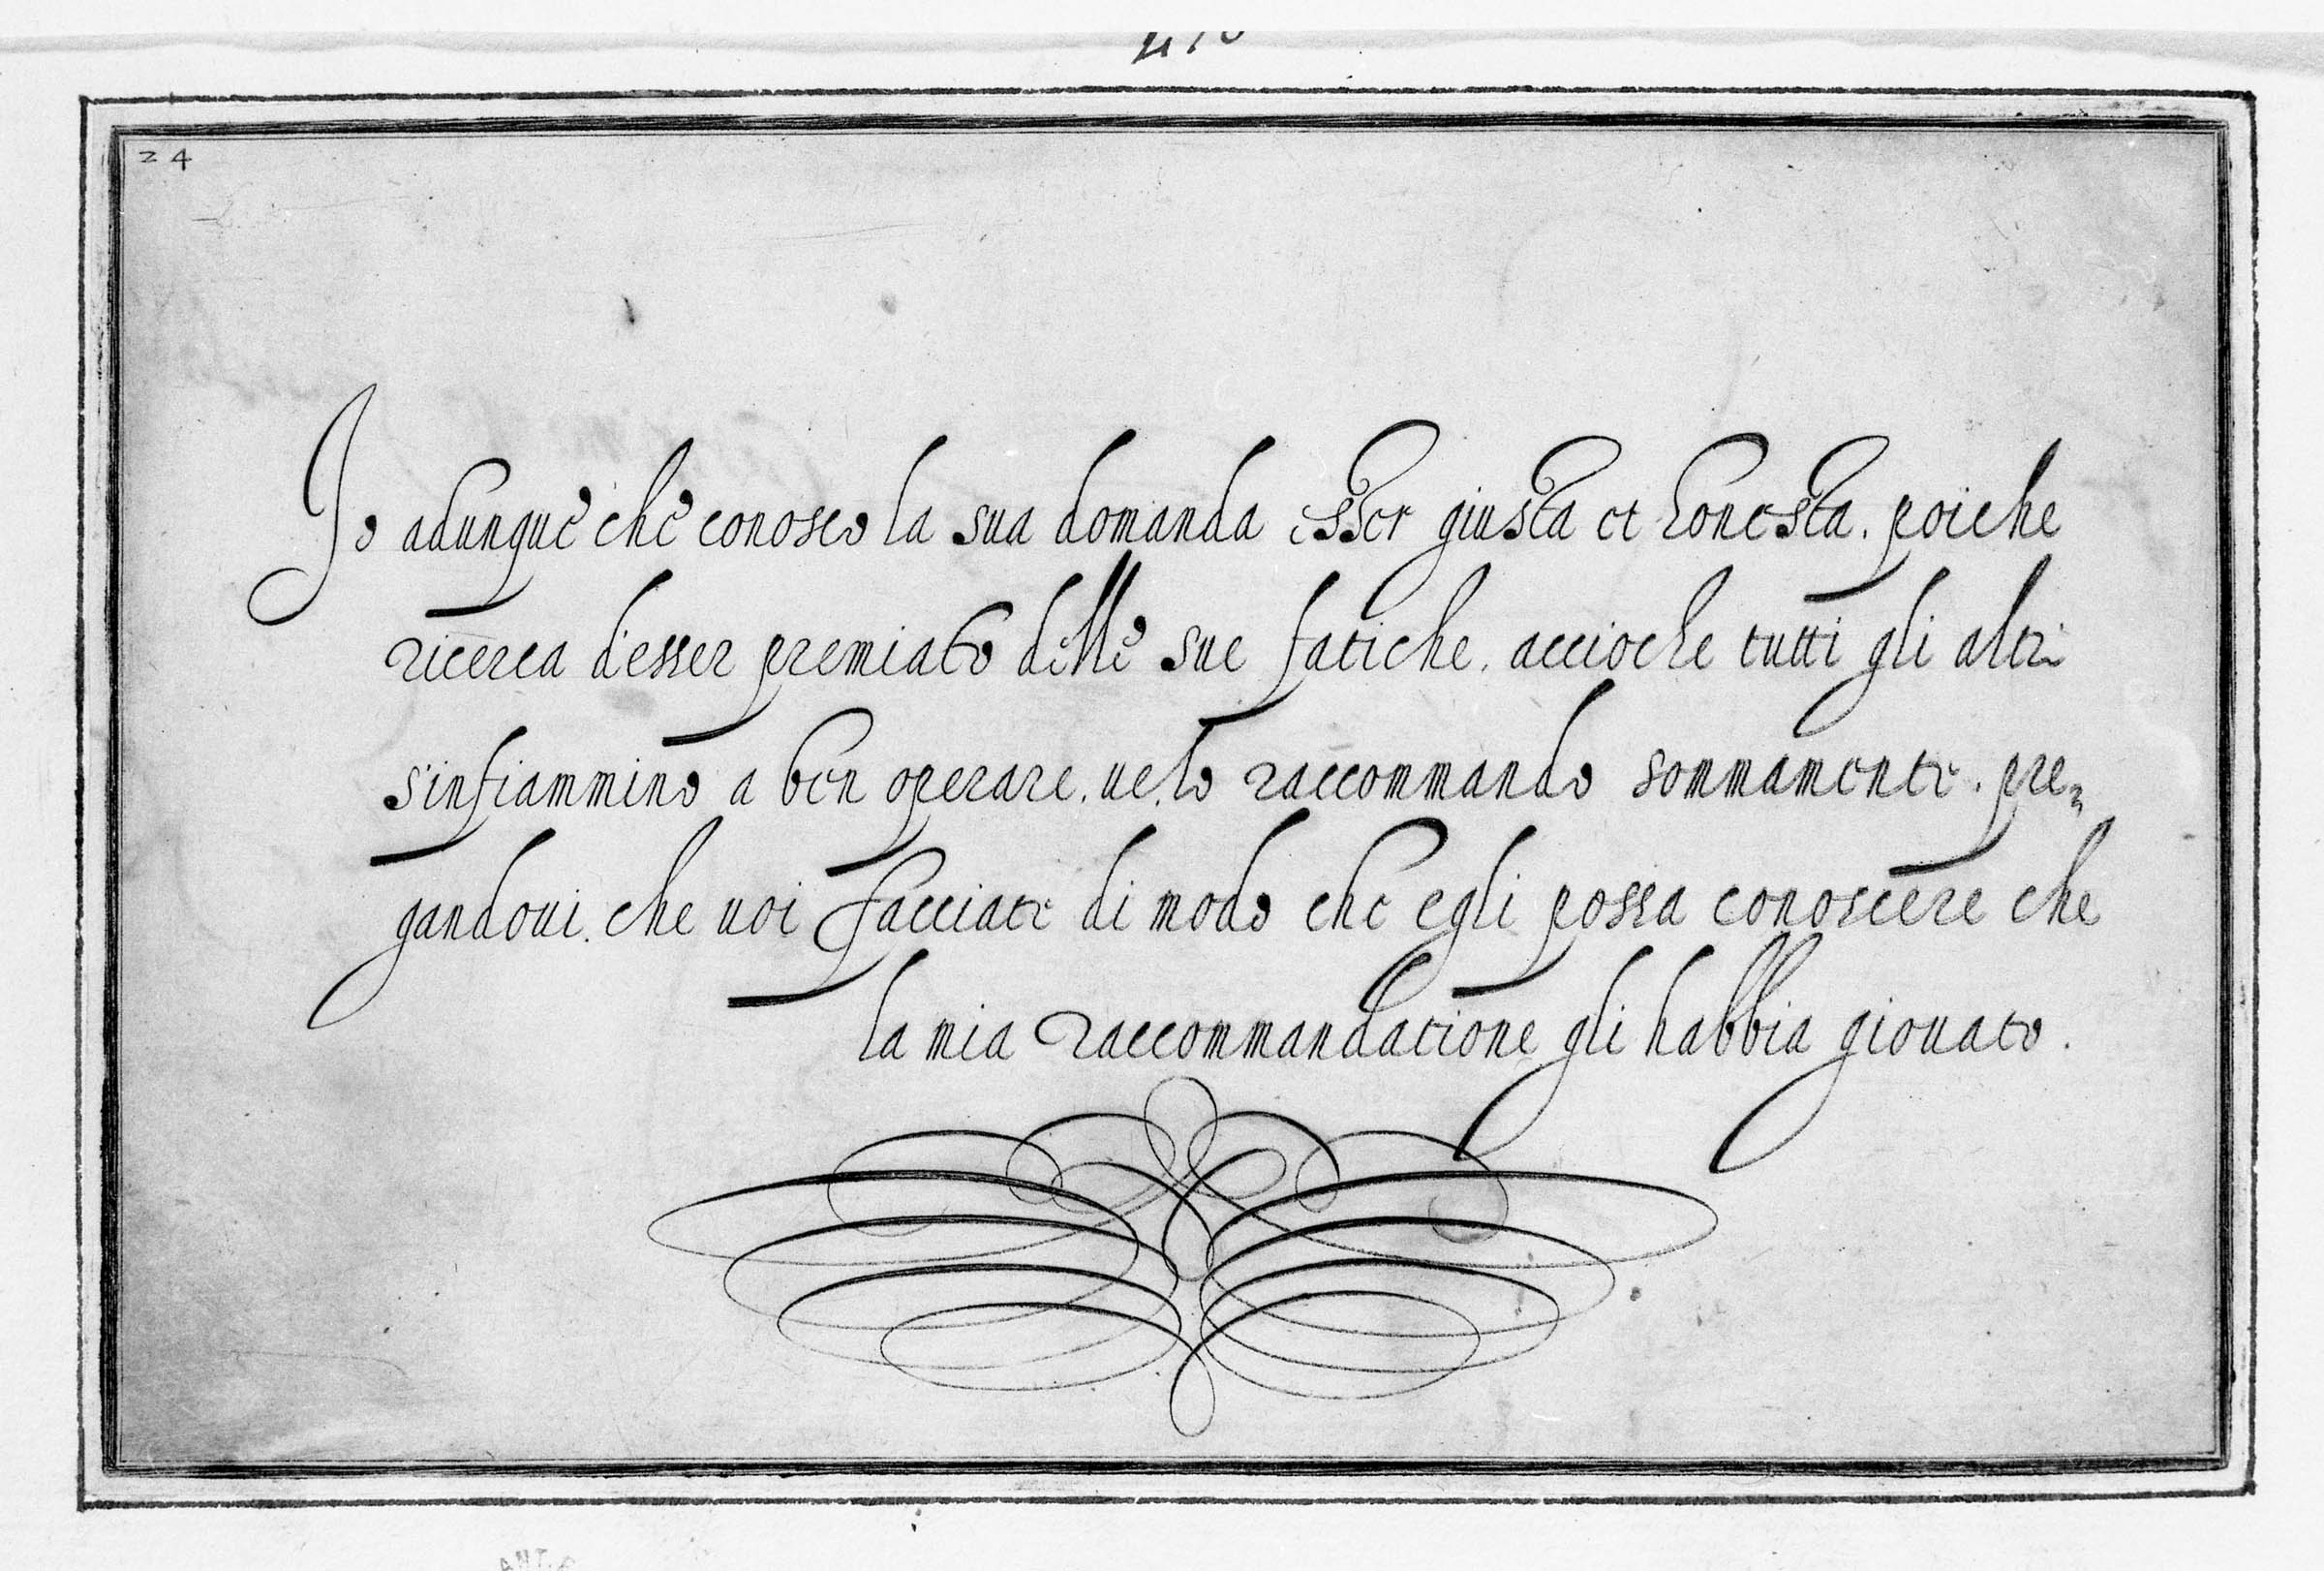 24
Io adunque che conosco la sua domanda esser giusta et honesta. poiche
ricerca d'esser premiato delle sue fatiche. accioche tutti gli altri
s'infiammino a ben operare. ue lo raccommando sommamente. pre=
gandoui. che uoi facciate di modo che egli possa conoscere che
la mia raccommandatione gli habbia giouato.